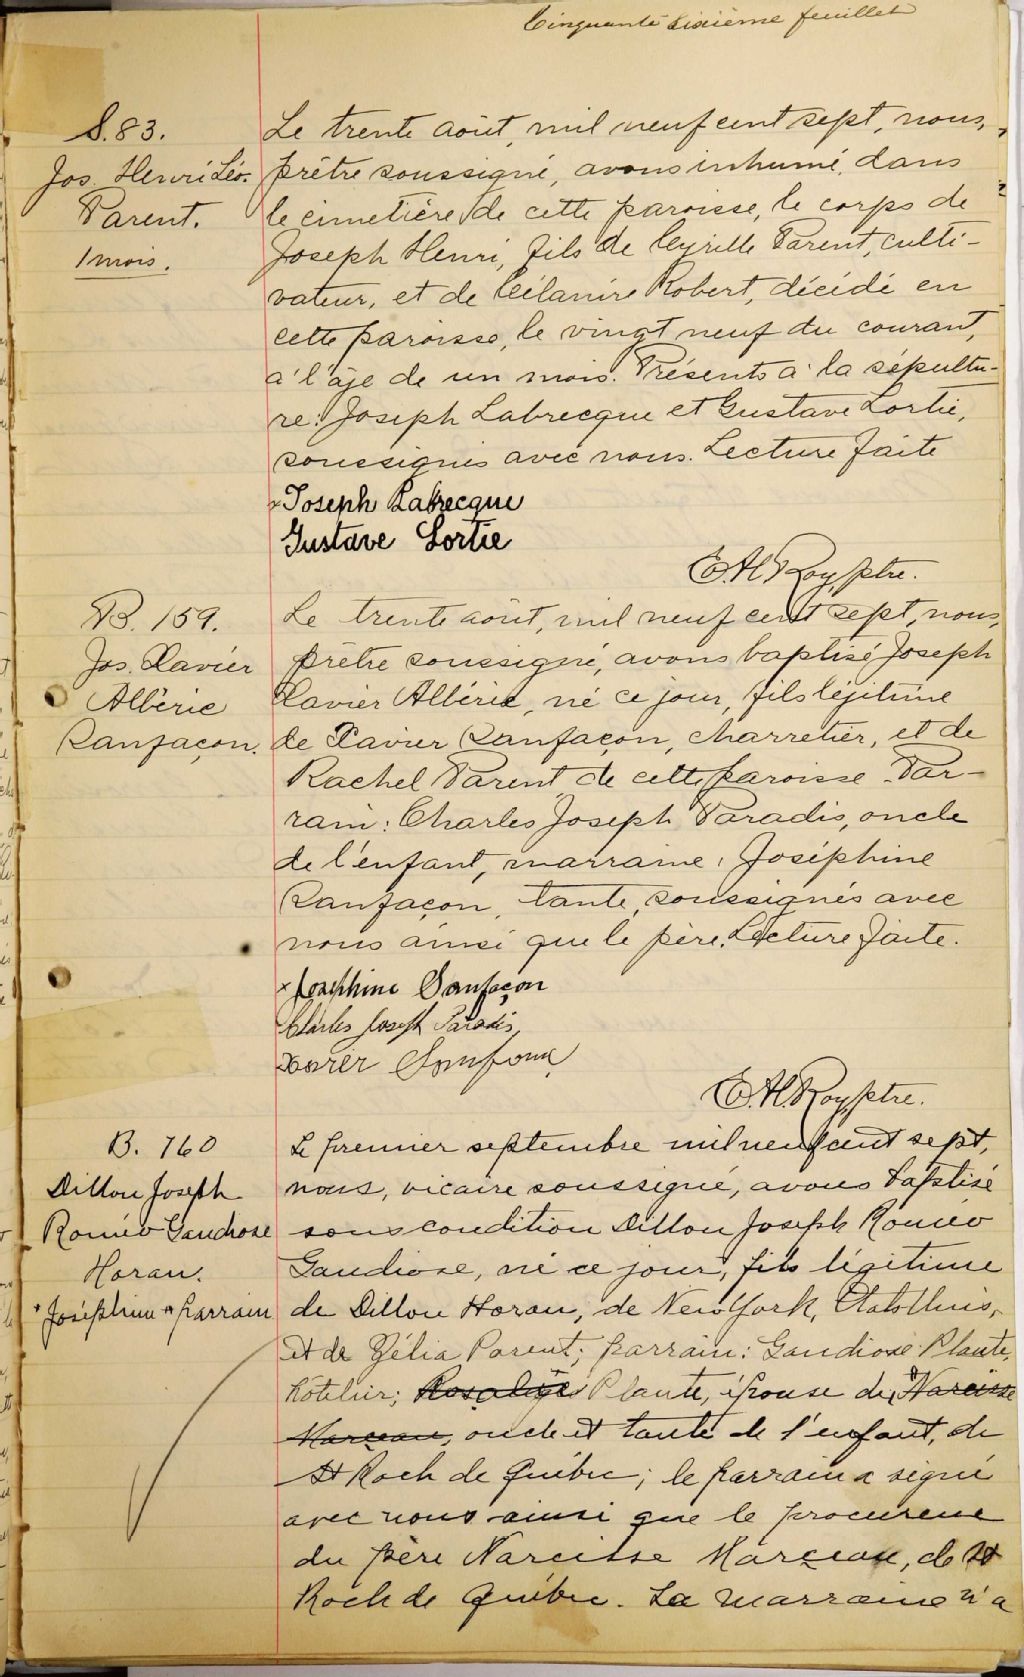 Cinquante sixième feuillet
S. 83.
Jos. Henri Léo.
Parent.
1 mois.
Le trente août, mil neuf cent sept, nous,
prêtre soussigné, avons inhumé, dans
le cimetière de cette paroisse, le corps de
Joseph Henri, fils de Cyrille Parent, culti-
vateur, et de Célanire Robert, décédé en
cette paroisse, le vingt neuf du courant,
à l'âge de un mois. Présents à la sépultu-
re: Joseph Labrecque et Gustave Lortie,
soussignés avec nous. Lecture faite
Joseph Labrecque
Gustave Lortie
E. H. Roy, ptre.
B. 159.
Jos. Xavier
Albéric
Sanfaçon.
Le trente août, mil neuf cent sept, nous,
prêtre soussigné, avons baptisé Joseph
Xavier Albéric, né ce jour, fils légitime
de Xavier Sanfaçon, charretier, et de
Rachel Parent de cette paroisse. Par-
rain: Charles Joseph Paradis, oncle
de l'enfant, marraine: Joséphine
Sanfaçon, tante, soussignés avec
nous ainsi que le père. Lecture faite.
x Josephine Sanfaçon
Charles Joseph Paradis
Xavier Sanfaçon
E. H. Roy, ptre.
B. 160
Dillon Joseph
Roméo Gaudiose
Horan.
+ Joséphine " parrain
Le premier septembre mil neuf cent sept,
nous, vicaire soussigné, avons baptisé
sous condition Dillon Joseph Roméo
Gaudiose, né ce jour, fils légitime
de Dillon Horan, de New York, Etats Unis,
et de Zélia Parent; parrain: Gaudiose Plante,
hôtelier; Rosalie Plante, épouse du Narcisse
Marceau, oncle et tante de l'enfant, de
St Roch de Québec; le parrain a signé
avec nous ainsi que le procureur
du père Narcisse Marceau, de St
Roch de Québec. La marraine n'a